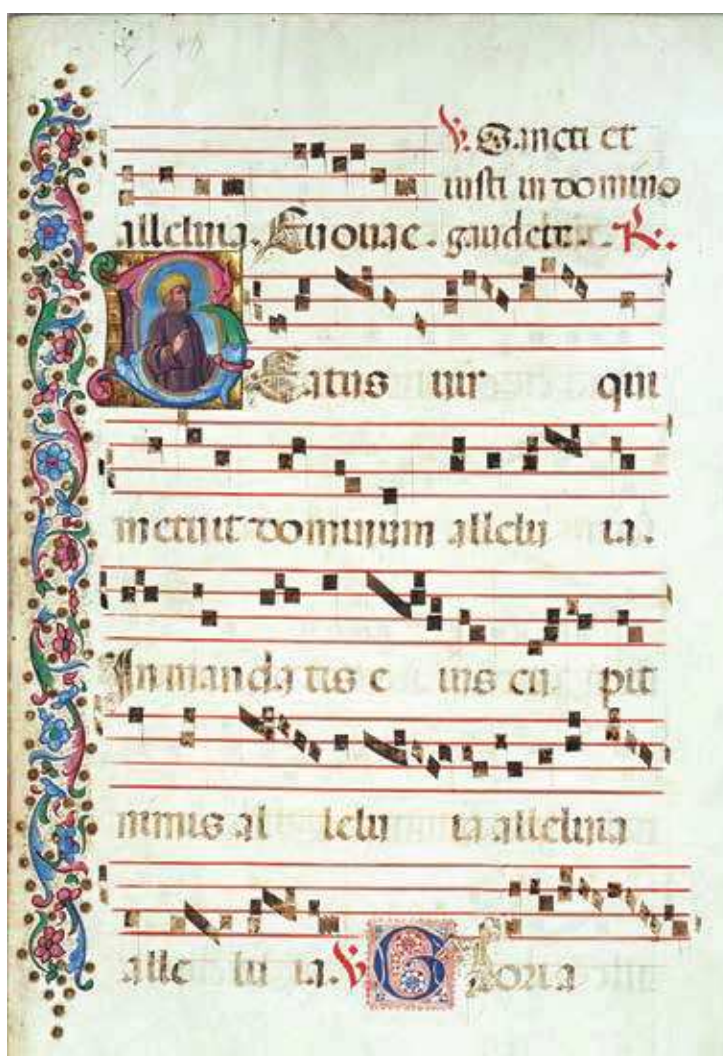 V. Sancti et
iusti in domino
alleluia. Euouae. gaudete. R.
Beatus uir qui
metuit dominum allelu ia.
In manda tis e ius cu pit
nimis al lelu ia alleluia
alle lu ia. V Gloria